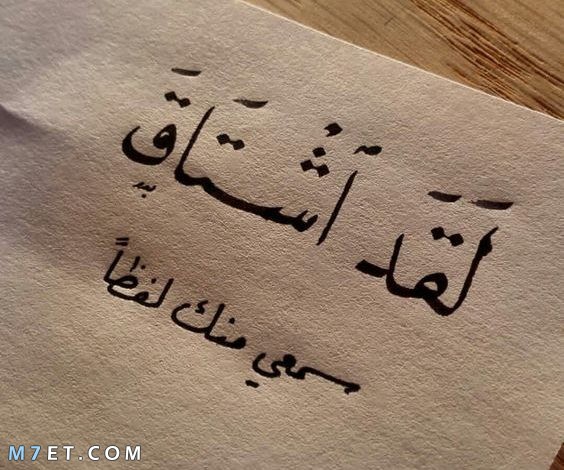 لَقَدْ اشْتَاقَ
سمعي منك لفظاً
M7ET.COM